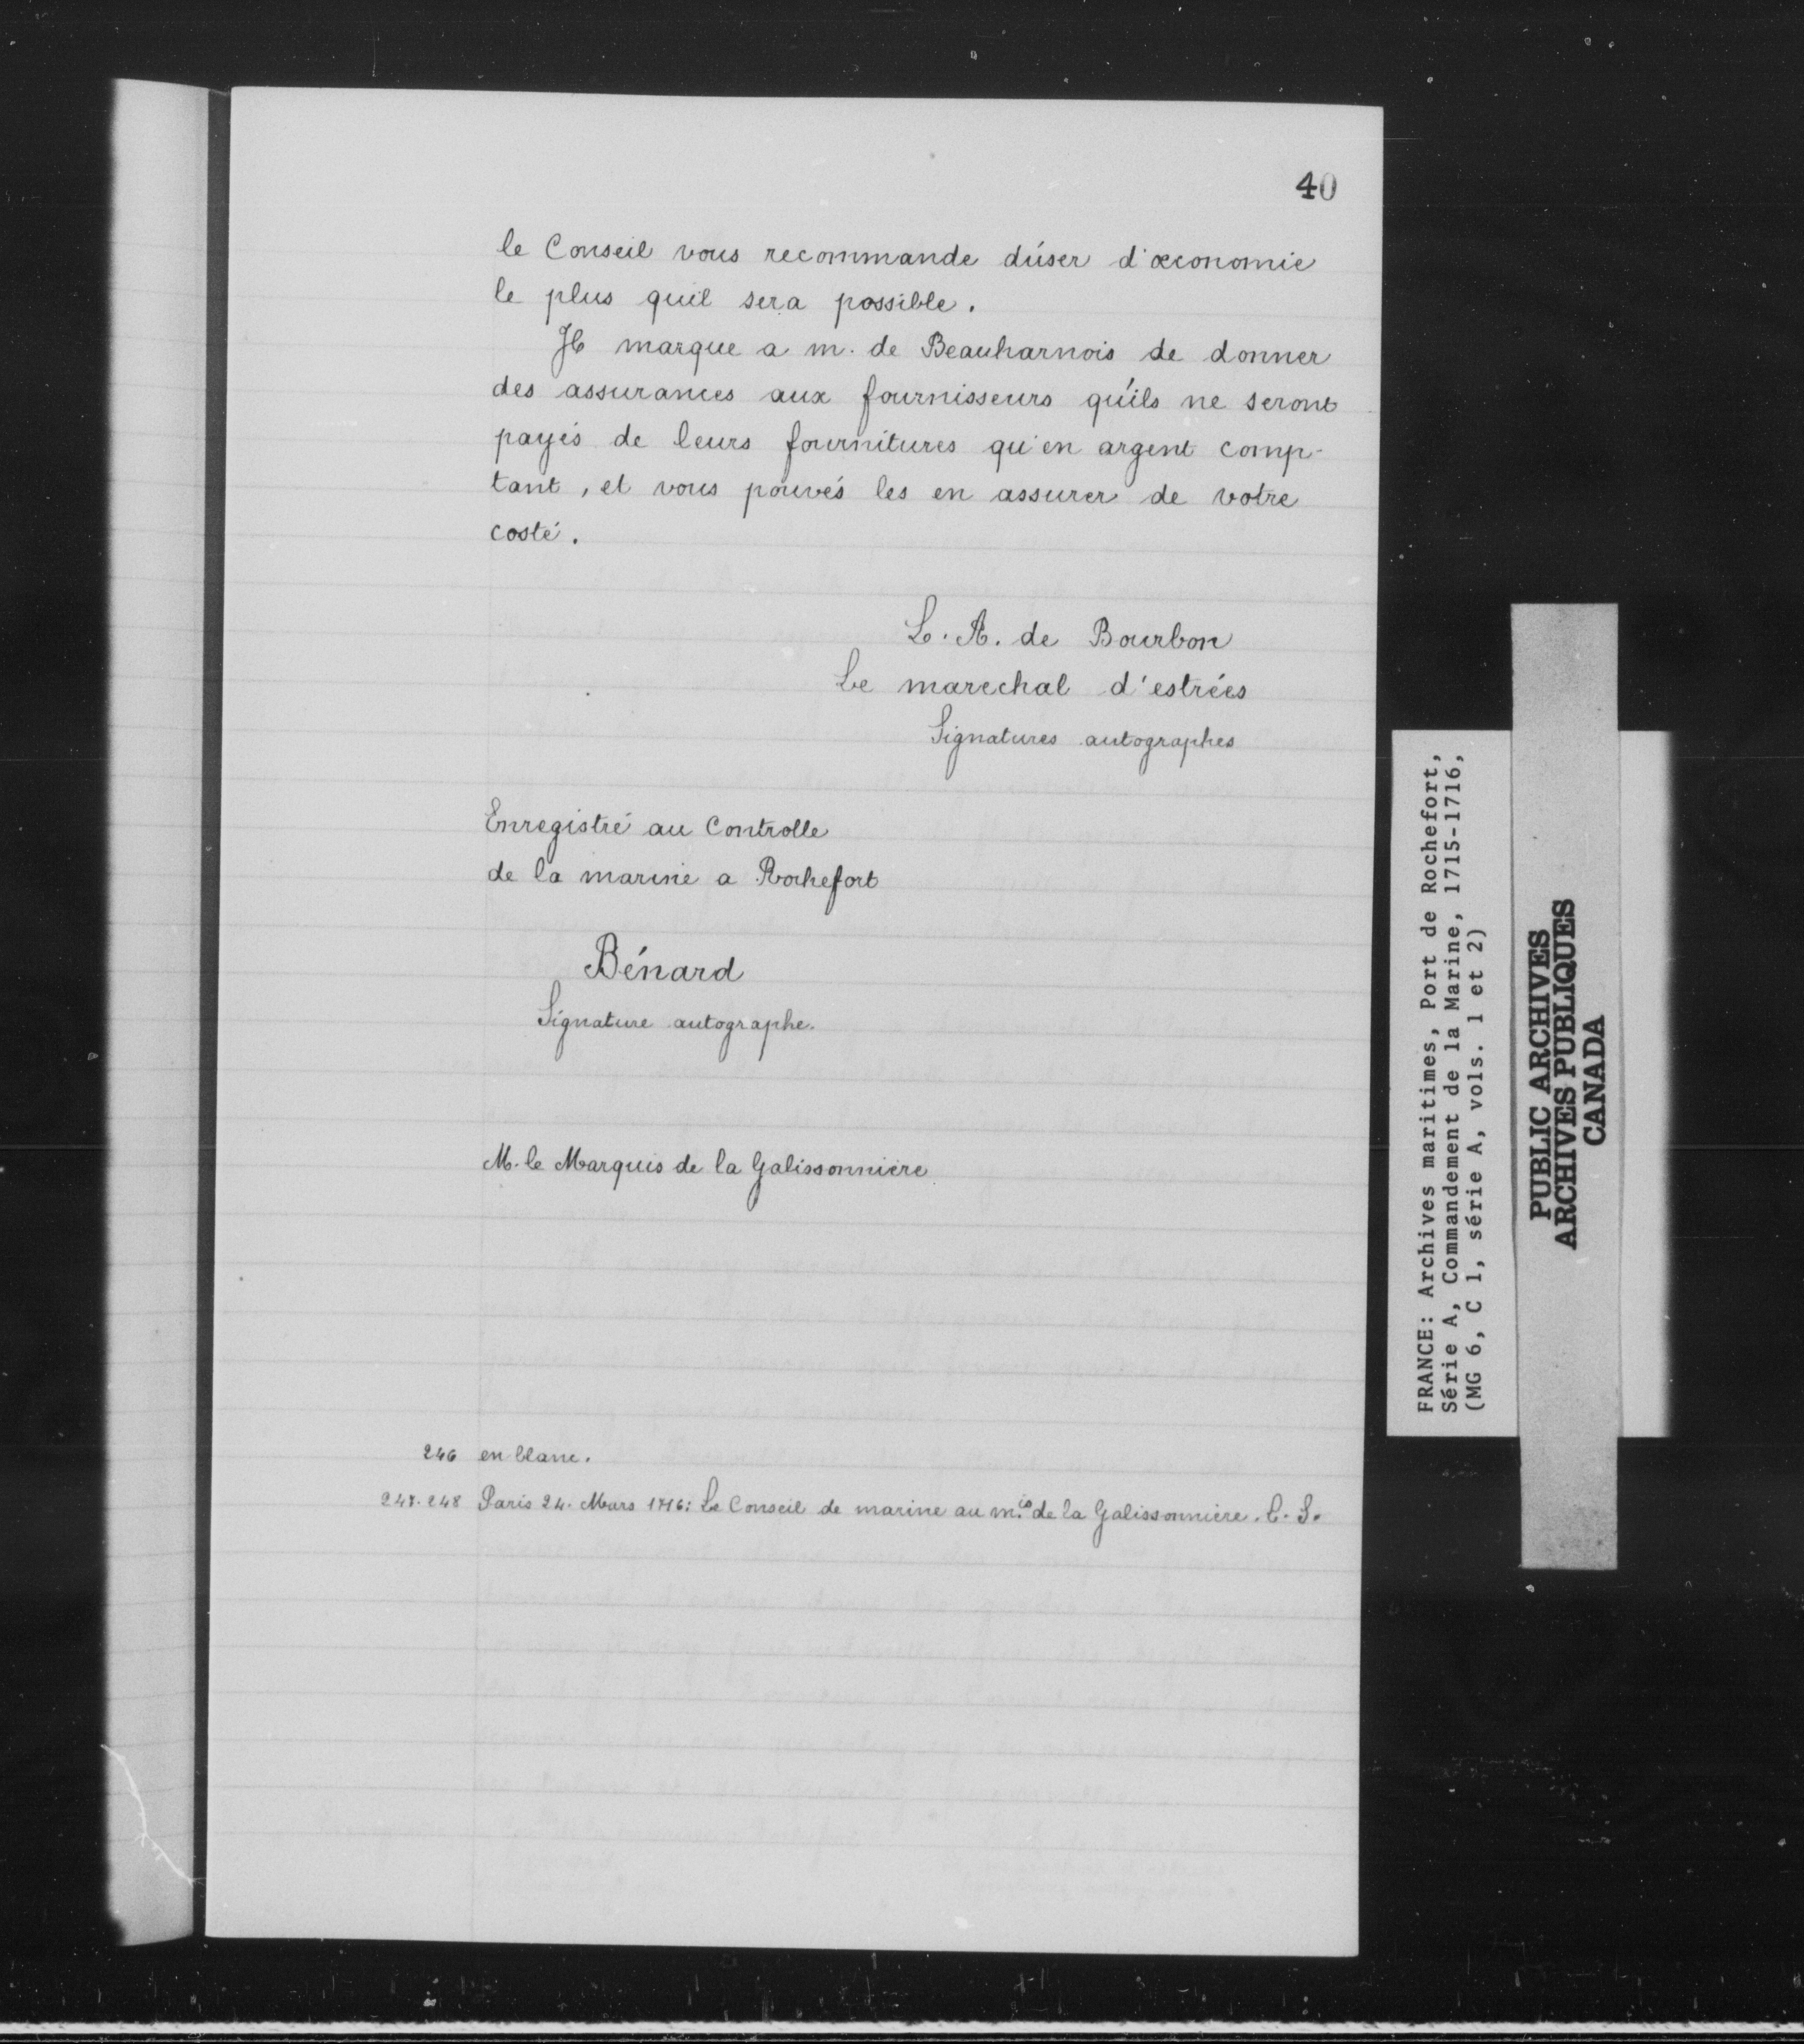 40
le Conseil vous recommande d'user d'œconomie
le plus quil sera possible.
Il marque a m. de Beauharnois de donner
des assurances aux fournisseurs qu'ils ne seront
payés de leurs fournitures qu'en argent comp-
tant, et vous pouvés les en assurer de votre
costé.
L. A. de Bourbon
Le marechal d'estrées
Signatures autographes
Enregistré au Controlle
de la marine a Rochefort
Bénard
Signature autographe.
M. le Marquis de la Galissonniere
246 en blanc.
247.248 Paris 24. Mars 1716: Le Conseil de marine au m.is de la Galissonniere. C. S.
FRANCE: Archives maritimes, Port de Rochefort,
Série A, Commandement de la Marine, 1715-1716,
(MG 6, C 1, série A, vols. 1 et 2)
PUBLIC ARCHIVES
ARCHIVES PUBLIQUES
CANADA